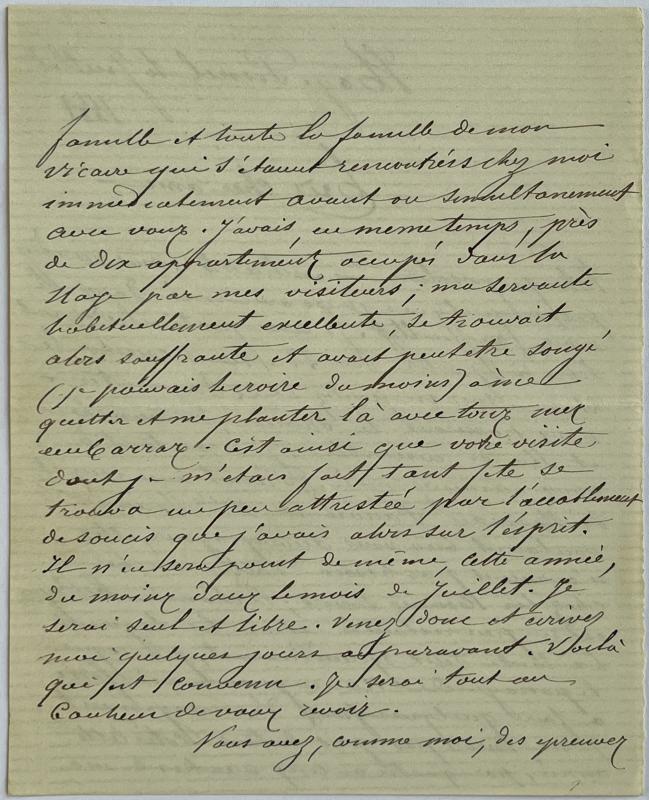 famille et toute la famille de mon
vicaire qui s'étaient rencontrés chez moi
immédiatement avant ou simultanément
avec vous. J'avais, en meme temps, près
de dix appartements occupés dans la
Haye par mes visiteurs; ma servante
habituellement excellente, se trouvait
alors souffrante et avait peut etre songé,
(je pouvais le croire du moins) à me
quitter et me planter là avec tous mes
embarras. C'est ainsi que votre visite
dont je m'étais fait tant fete se
trouva un peu attristée par l'accablement
de soucis que j'avais alors sur l'ésprit.
Il n'en sera point de même, cette année,
du moins dans le mois de Juillet. Je
serai seul et libre. Venez donc et écrivez
moi quelques jours auparavant. Voilà
qui est convenu. Je serai tout au
bonheur de vous revoir.
Vous avez, comme moi, des epreuves